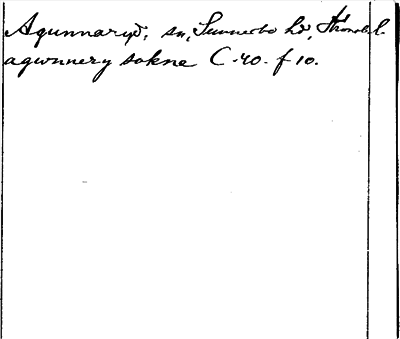 Agunnaryd, sn, Sunnerbo hd, Kronob. l.
agwnnery sokne C-40. f 10.